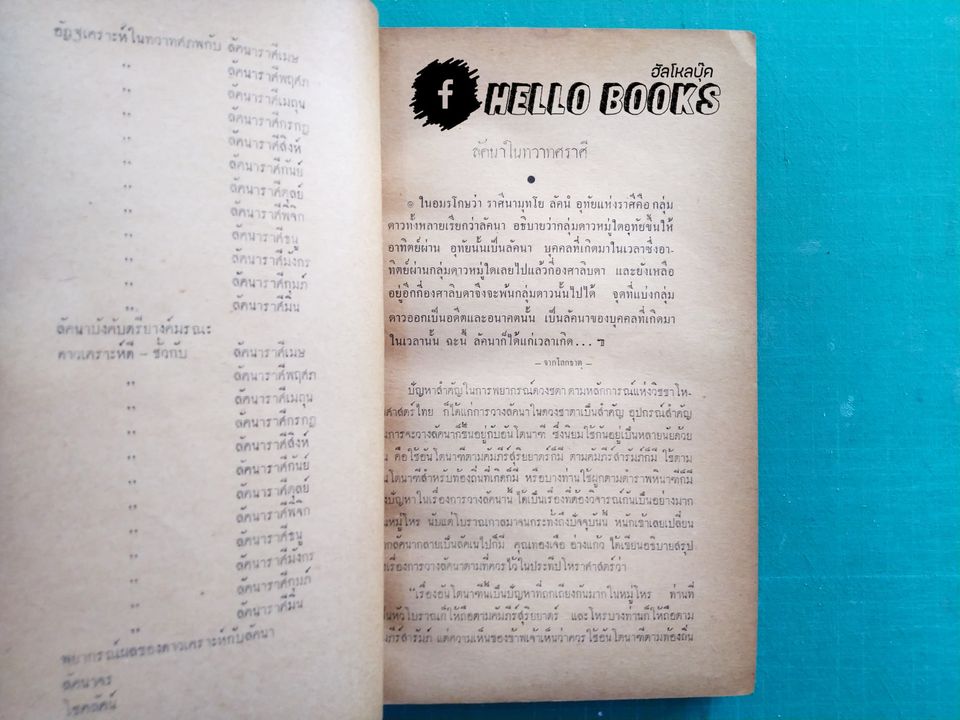 อัฏฐเคราะห์ในทวาทศภพกับ ลัคนาราศีเมษ
,, ลัคนาราศีพฤศภ
,, ลัคนาราศีเมถุน
,, ลัคนาราศีกรกฎ
,, ลัคนาราศีสิงห์
,, ลัคนาราศีกันย์
,, ลัคนาราศีตุลย์
,, ลัคนาราศีพิจิก
,, ลัคนาราศีธนู
,, ลัคนาราศีมังกร
,, ลัคนาราศีกุมภ์
,, ลัคนาราศีมีน
ลัคนาบังคับตรียางค์มรณะ
ดาวเคราะห์ดี - ชั่วกับ ลัคนาราศีเมษ
,, ลัคนาราศีพฤศภ
,, ลัคนาราศีเมถุน
,, ลัคนาราศีกรกฎ
,, ลัคนาราศีสิงห์
,, ลัคนาราศีกันย์
,, ลัคนาราศีตุลย์
,, ลัคนาราศีพิจิก
,, ลัคนาราศีธนู
,, ลัคนาราศีมังกร
,, ลัคนาราศีกุมภ์
,, ลัคนาราศีมีน
พยากรณ์ผลของดาวเคราะห์กับลัคนา
ลัคนาจร
โชคลัคน์
ฮัลโหลบุ๊ค
f HELLO BOOKS
ลัคนาในทวาทศราศี
๏ ในอมรโกษว่า ราศีนามุทโย ลัคนํ อุทัยแห่งราศีคือกลุ่ม
ดาวทั้งหลายเรียกว่าลัคนา อธิบายว่ากลุ่มดาวหมู่ใดอุทัยขึ้นให้
อาทิตย์ผ่าน อุทัยนั้นเป็นลัคนา บุคคลที่เกิดมาในเวลาซึ่งอา-
ทิตย์ผ่านกลุ่มดาวหมู่ใดเลยไปแล้วกี่องศาลิบดา และยังเหลือ
อยู่อีกกี่องศาลิบดาจึงจะพ้นกลุ่มดาวนั้นไปได้ จุดที่แบ่งกลุ่ม
ดาวออกเป็นอดีตและอนาคตนั้น เป็นลัคนาของบุคคลที่เกิดมา
ในเวลานั้น ฉะนี้ ลัคนาก็ได้แก่เวลาเกิด... ฯ
– จากโลกธาตุ –
ปัญหาสำคัญในการพยากรณ์ดวงชตา ตามหลักการณ์แห่งวิชชาโห-
ศาสตร์ไทย ก็ได้แก่การวางลัคนาในดวงชาตาเป็นสำคัญ อุปกรณ์สำคัญ
นการจะวางลัคนาก็ขึ้นอยู่กับอันโตนาฑี ซึ่งนิยมใช้กันอยู่เป็นหลายนัยด้วย
น คือใช้อันโตนาฑีตามคัมภีร์สุริยยาตร์ก็มี ตามคัมภีร์สารัมภ์ก็มี ใช้ตาม
นโตนาฑีสำหรับท้องถิ่นที่เกิดก็มี หรือบางท่านใช้ผูกตามตำราพหินาฑีก็มี
งปัญหาในเรื่องการวางลัคนานี้ ได้เป็นเรื่องที่ต้องวิจารณ์กันเป็นอย่างมาก
นหมู่โหร นับแต่โบราณกาลมาจนกระทั่งถึงปัจจุบันนี้ หนักเข้าเลยเปลี่ยน
กลัคนากลายเป็นลัคเนไปก็มี คุณทองเจือ อ่างแก้ว ได้เขียนอธิบายสรุป
เรื่องการวางลัคนาตามที่ควรไว้ในประทีปโหราศาสตร์ว่า
"เรื่องอันโตนาฑีนี้เป็นปัญหาที่ถกเถียงกันมากในหมู่โหร ท่านที่
นหัวโบราณก็ให้ถือตามคัมภีร์สุริยยาตร์ และโหรบางท่านก็ให้ถือตาม
ภีร์สารัมภ์ แต่ความเห็นของข้าพเจ้าเห็นว่าควรใช้อันโตนาฑีตามท้องถิ่น